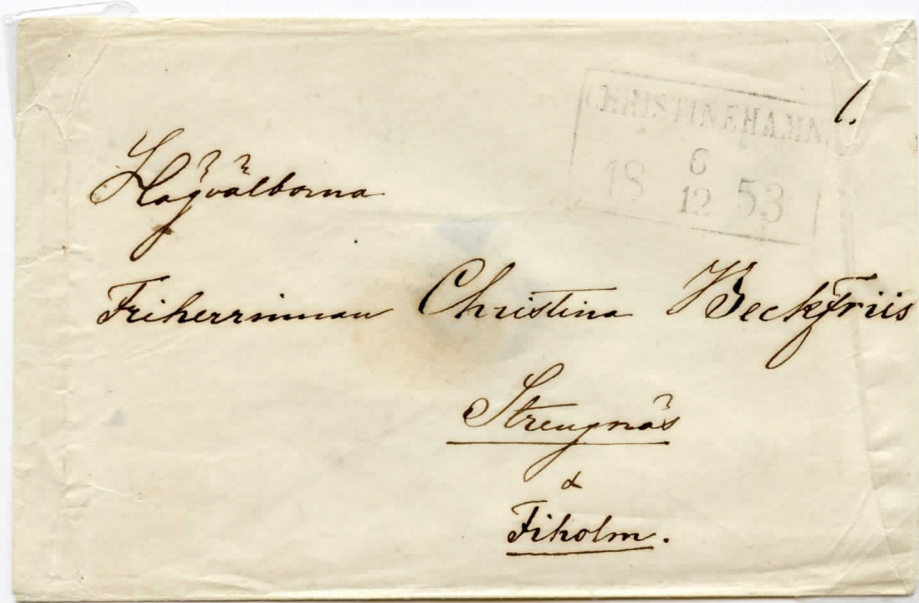 CHRISTINEHAMN.
6
18 12 53
1.
Högvälborna
Friherrinnan Christina Beckfriis
Strengnäs
&
Fiholm.